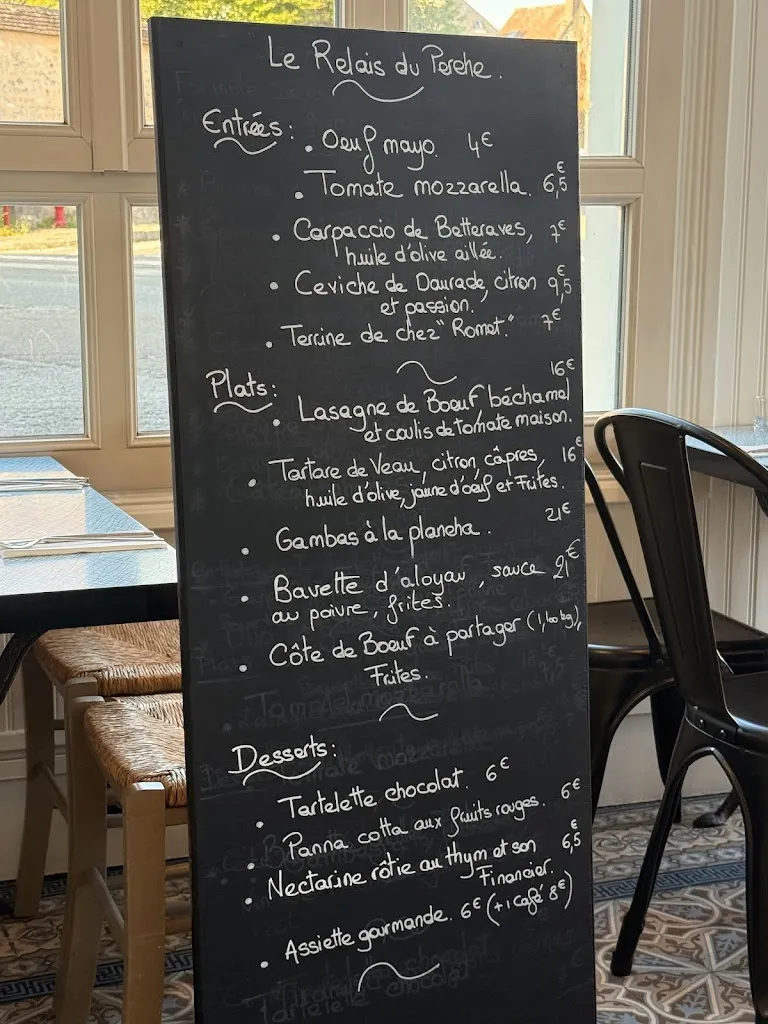 Le Relais du Perche.
Entrées:
• Oeuf mayo. 4€
• Tomate mozzarella. 6,5€
• Carpaccio de Betteraves, 7€
huile d'olive aillée.
• Ceviche de Daurade, citron 9,5€
et passion.
• Terrine de chez "Romet." 7€
Plats:
16€
• Lasagne de Boeuf, béchamel
et coulis de tomate maison.
• Tartare de Veau, citron, câpres, 16€
huile d'olive, jaune d'oeuf et Frites.
• Gambas à la plancha. 21€
• Bavette d'aloyau, sauce 21€
au poivre, frites.
• Côte de Boeuf à partager (1,100kg),
Frites.
Desserts:
• Tartelette chocolat. 6€
• Panna cotta aux fruits rouges. 6€
• Nectarine rôtie au thym et son 6,5€
Financier.
• Assiette gourmande. 6€ (+1 café 8€)